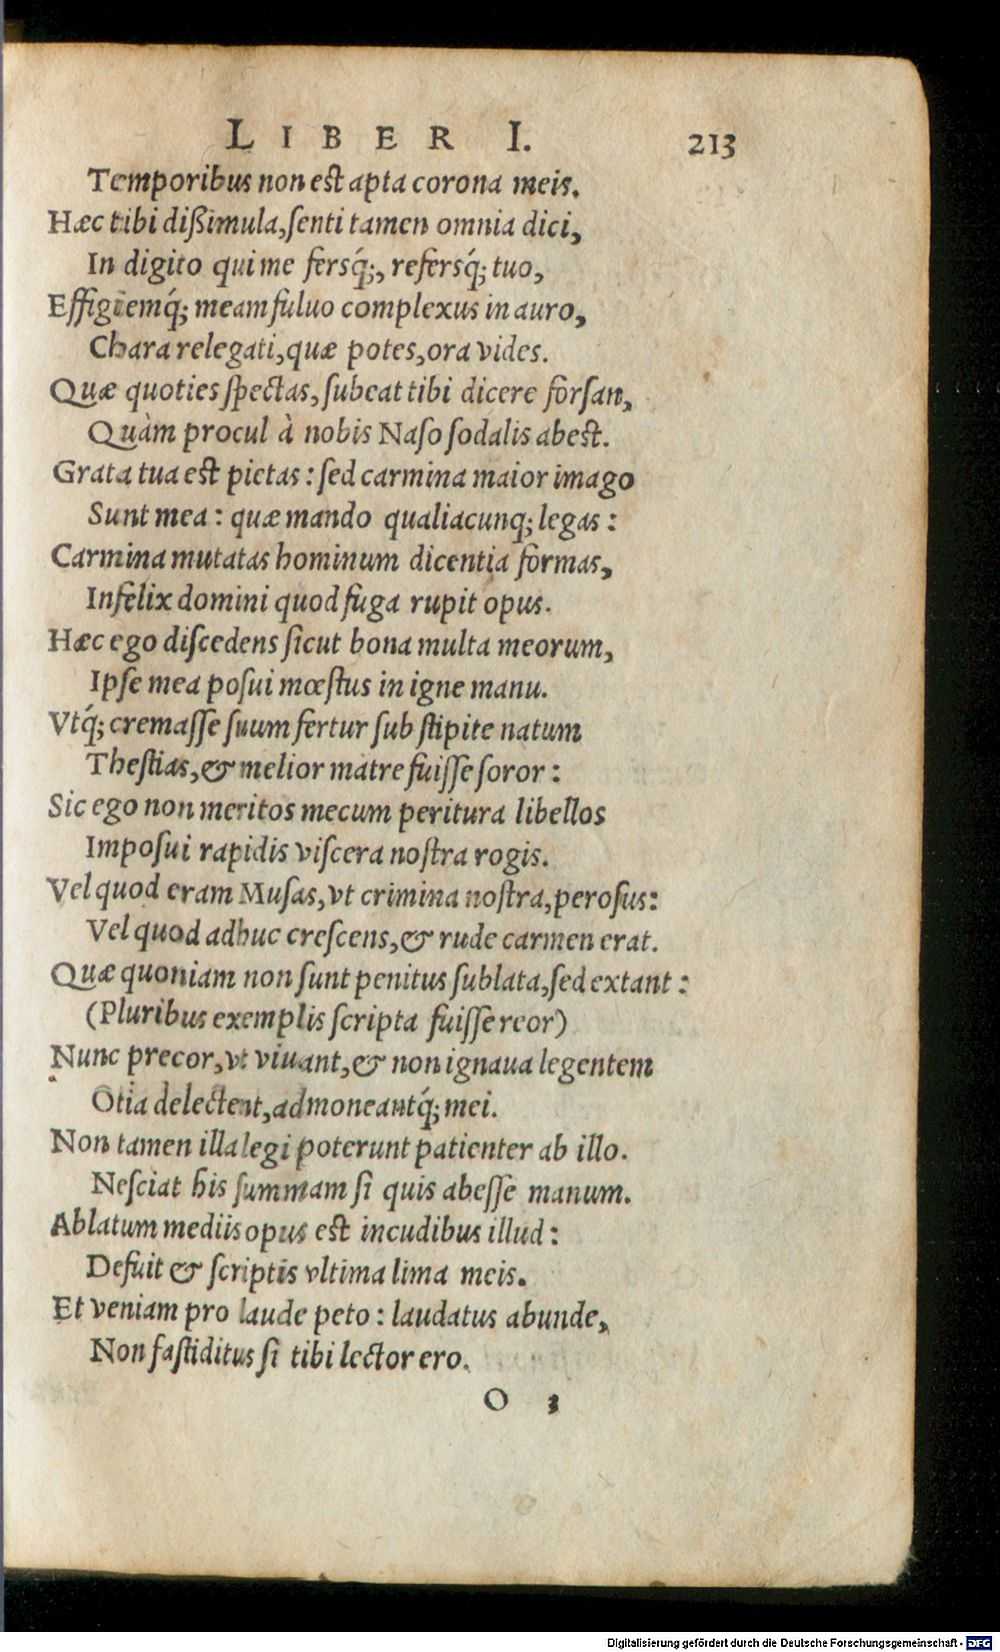 LIBER I. 213
Temporibus non est apta corona meis.
Hæc tibi dißimula, ſenti tamen omnia dici,
In digito qui me fersq́;, refersq́; tuo,
Effigiemq́; meam fuluo complexus in auro,
Chara relegati, quæ potes, ora vides.
Quæ quoties ſpectas, ſubeat tibi dicere forſan,
Quàm procul à nobis Naſo ſodalis abest.
Grata tua est pietas: ſed carmina maior imago
Sunt mea: quæ mando qualiacunq; legas:
Carmina mutatas hominum dicentia formas,
Infelix domini quod fuga rupit opus.
Hæc ego diſcedens ſicut bona multa meorum,
Ipſe mea poſui mœſtus in igne manu.
Vtq́; cremaſſe ſuum fertur ſub ſtipite natum
Theſtias, & melior matre fuiſſe ſoror:
Sic ego non meritos mecum peritura libellos
Impoſui rapidis viſcera noſtra rogis.
Vel quod eram Muſas, vt crimina noſtra, peroſus:
Vel quod adhuc creſcens, & rude carmen erat.
Quæ quoniam non ſunt penitus ſublata, ſed extant:
(Pluribus exemplis ſcripta fuiſſe reor)
Nunc precor, vt viuant, & non ignaua legentem
Otia delectent, admoneantq́; mei.
Non tamen illa legi poterunt patienter ab illo.
Neſciat his ſummam ſi quis abeſſe manum.
Ablatum mediis opus est incudibus illud:
Defuit & ſcriptis vltima lima meis.
Et veniam pro laude peto: laudatus abunde,
Non faſtiditus ſi tibi lector ero.
O 3
Digitalisierung gefördert durch die Deutsche Forschungsgemeinschaft - DFG